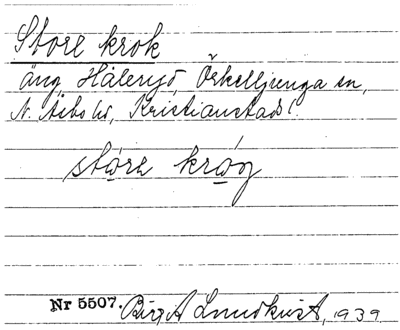 Store krok
äng, Håleryd, Örkelljunga sn,
N. Åsbo hd, Kristianstads l.
store krog
Nr 5507. Birgit Lundkvist, 1939